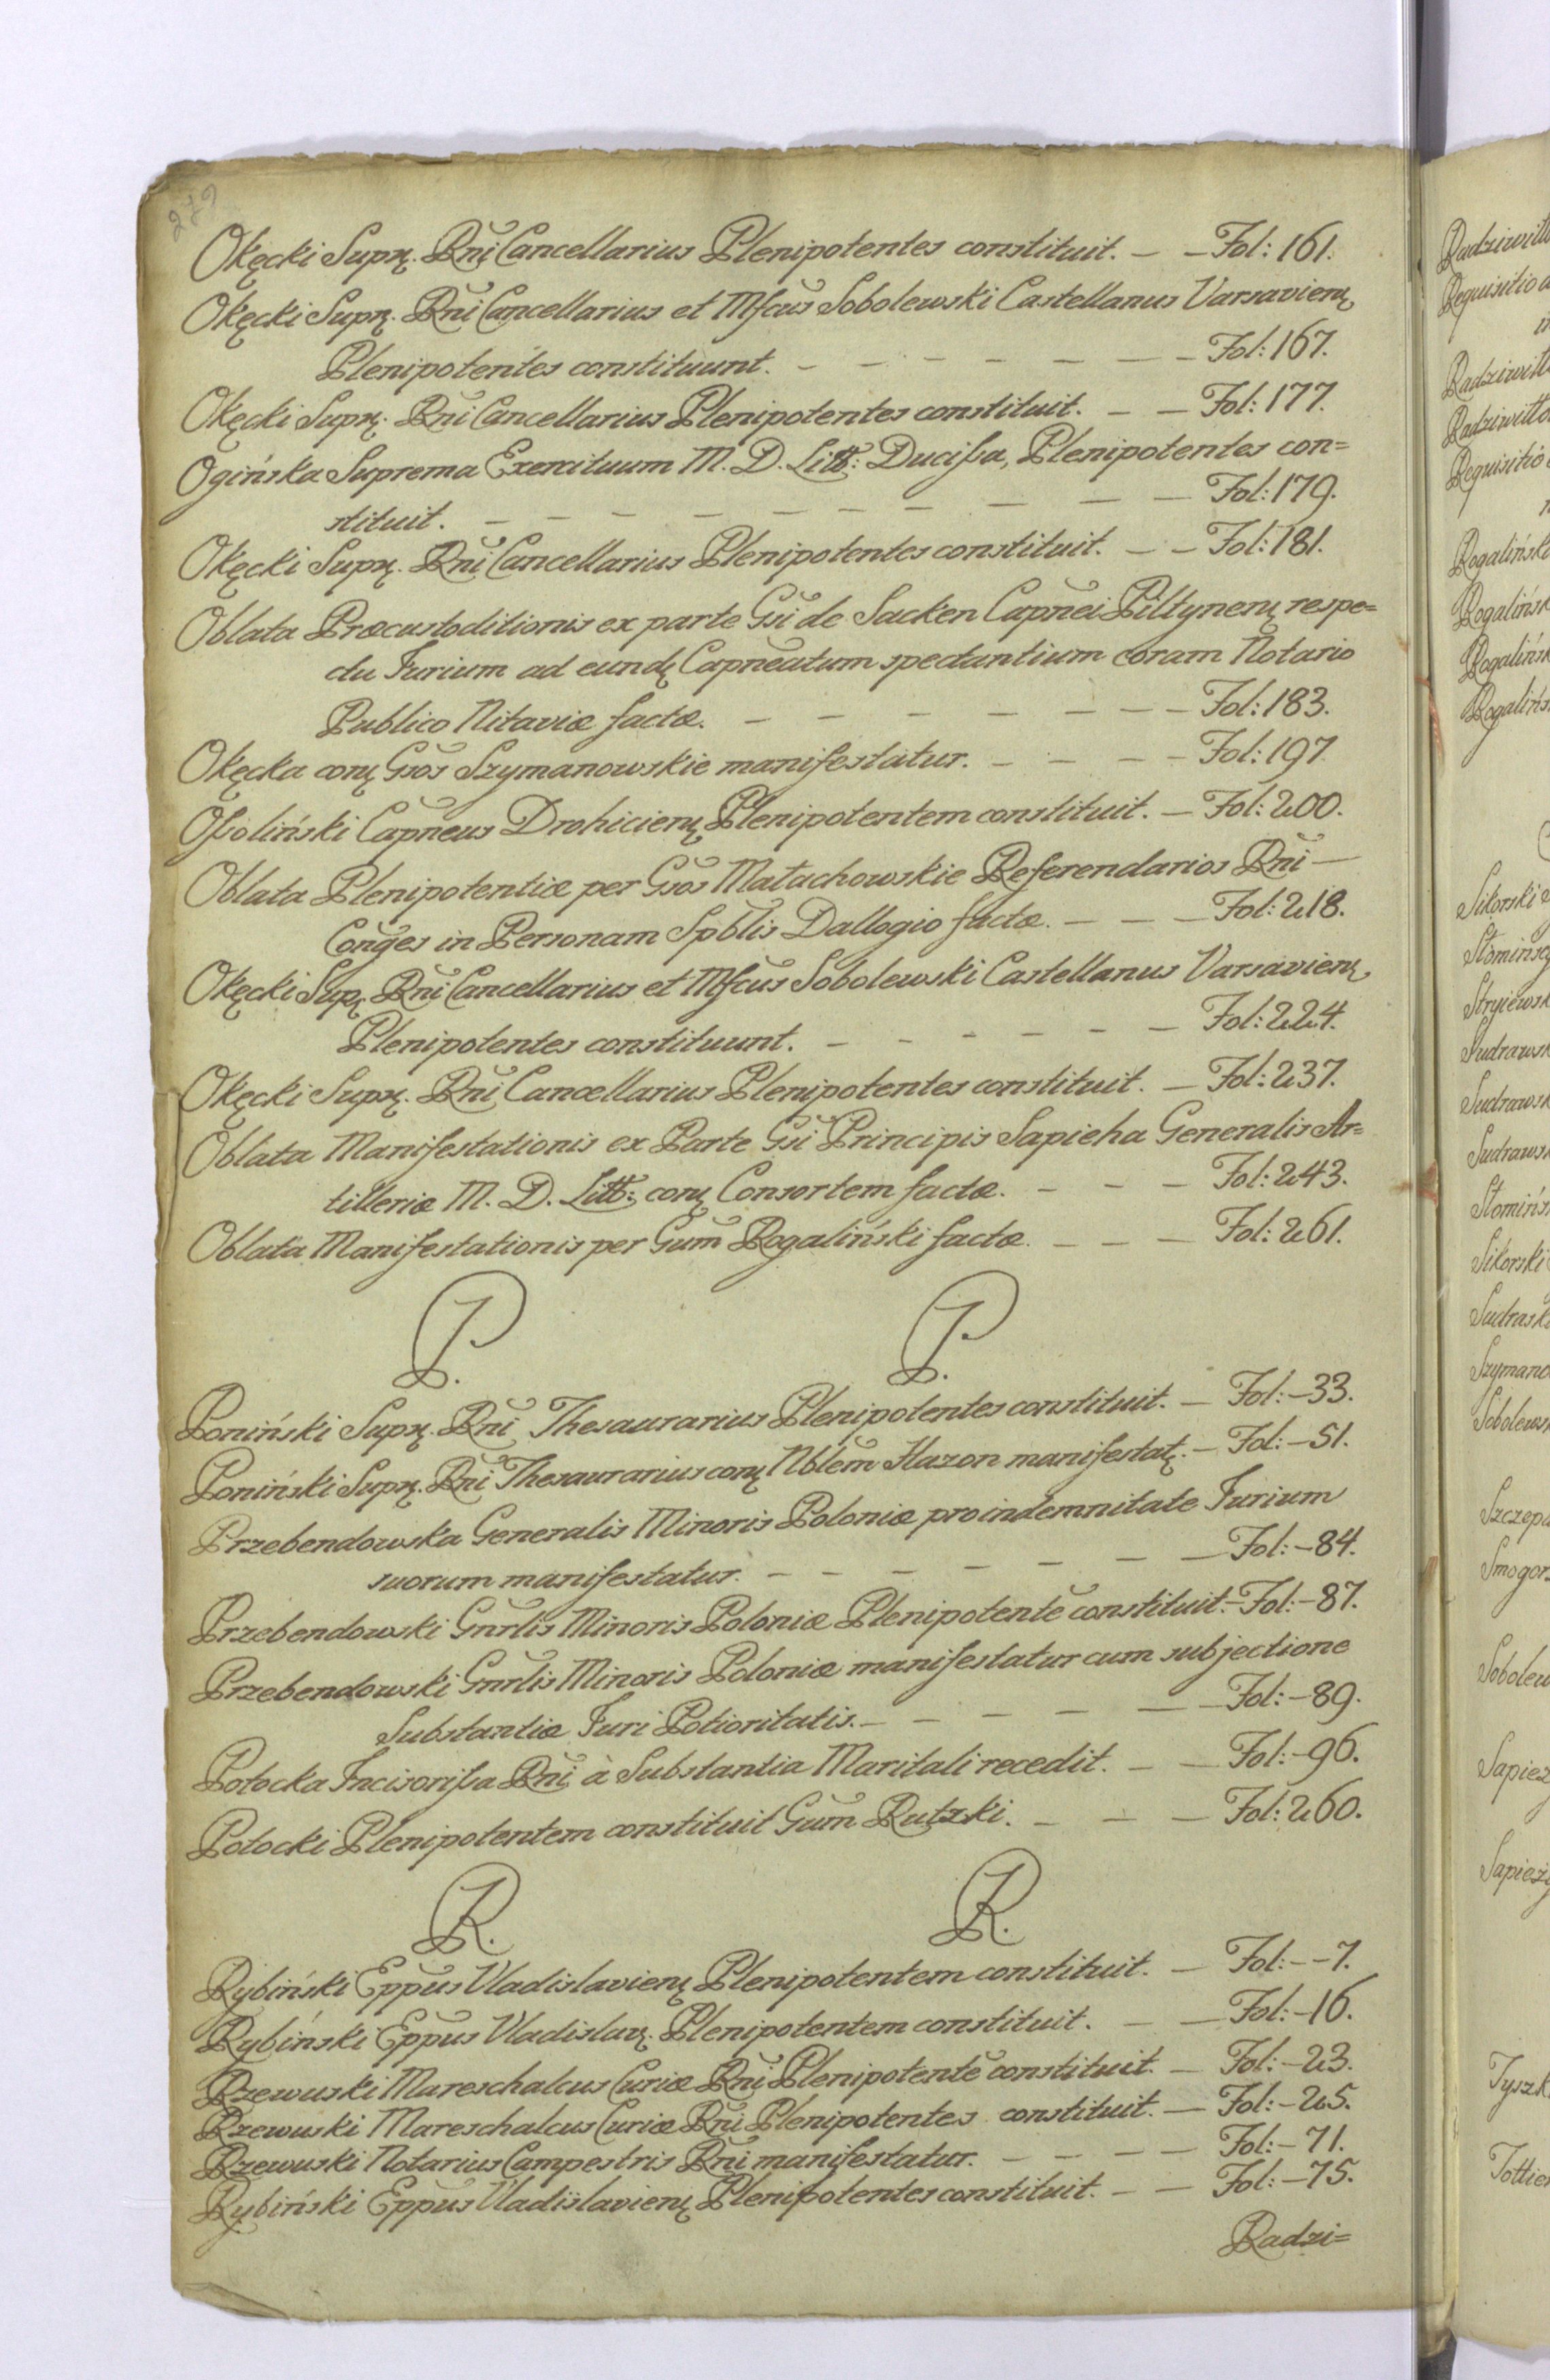 Okęcki Supr. Rñi Cancellarius Plenipotentes constituit. — — Fol: 161.
Okęcki Supr. Rñi Cancellarius et Mfcus Sobolewski Castellanus Varsavien.
Plenipotentes constituunt. — — — — — — — Fol: 167.
Okęcki Supr. Rñi Cancellarius Plenipotentes constituit. — — Fol: 177.
Ogińska Suprema Exercituum M. D. Litt: Ducissa, Plenipotentes con=
stituit. — — — — — — — — — Fol: 179.
Okęcki Supr. Rñi Cancellarius Plenipotentes constituit. — — Fol: 181.
Oblata Præcustoditionis ex parte Gsi de Sacken Capnei Piltynen. respe=
ctu Jurium ad eund. Capneatum spectantium coram Notario
Publico Mitaviæ factæ. — — — — — — — Fol: 183.
Okęcka con. Gsos Szymanowskie manifestatur. — — — — Fol: 197.
Ossoliński Capneus Drohicien. Plenipotentem constituit. — Fol: 200.
Oblata Plenipotentiæ per Gsos Małachowskie Referendarios Rñi —
Conges in Personam Spblis Dallogio factæ. — — — Fol: 218.
Okęcki Sup. Rñi Cancellarius et Mfcus Sobolewski Castellanus Varsavien.
Plenipotentes constituunt. — — — — — — Fol: 224.
Okęcki Supr. Rñi Cancellarius Plenipotentes constituit. — Fol: 237.
Oblata Manifestationis ex Parte Gsi Principis Sapieha Generalis Ar=
tilleriæ M. D. Litt: con. Consortem factæ. — — — Fol: 243.
Oblata Manifestationis per Gum Rogaliński factæ. — — — Fol: 261.
P. P.
Poniński Supr. Rñi Thesaurarius Plenipotentes constituit. — Fol: —33.
Poniński Supr. Rñi Thesaurarius con. Nblem Hazon manifestat. — Fol: —51.
Przebendowska Generalis Minoris Poloniæ pro indemnitate Jurium
suorum manifestatur. — — — — — — — Fol: —84.
Przebendowski Gnrlis Minoris Poloniæ Plenipotentē constituit. — Fol: —87.
Przebendowski Gnrlis Minoris Poloniæ manifestatur cum subjectione
Substantiæ Juri Potioritatis. — — — — — — Fol: —89.
Potocka Incisorissa Rñi à Substantia Maritali recedit. — — Fol: —96.
Potocki Plenipotentem constituit Gum Rutzki. — — — Fol: 260.
R. R.
Rybiński Eppus Vladislavien. Plenipotentem constituit. — Fol: — —7.
Rybiński Eppus Vladislav. Plenipotentem constituit. — — Fol: —16.
Rzewuski Mareschalcus Curiæ Rñi Plenipotentē constituit. — Fol: —23.
Rzewuski Mareschalcus Curiæ Rñi Plenipotentes constituit. — Fol: —25.
Rzewuski Notarius Campestris Rñi manifestatur. — — — — Fol: —71.
Rybiński Eppus Vladislavien. Plenipotentes constituit. — — Fol: —75.
Radzi=